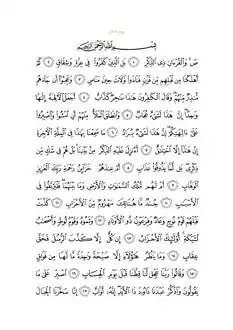 بِسْمِ اللَّهِ الرَّحْمَٰنِ الرَّحِيمِ
صٓ وَالْقُرْءَانِ ذِى الذِّكْرِ ١ بَلِ الَّذِينَ كَفَرُوا فِى عِزَّةٍ وَشِقَاقٍ ٢ كَمْ
أَهْلَكْنَا مِن قَبْلِهِم مِّن قَرْنٍ فَنَادَوا وَّلَاتَ حِينَ مَنَاصٍ ٣ وَعَجِبُوا أَن جَاءَهُم
مُّنذِرٌ مِّنْهُمْ وَقَالَ الْكَٰفِرُونَ هَٰذَا سَٰحِرٌ كَذَّابٌ ٤ أَجَعَلَ الْءَالِهَةَ إِلَٰهًا
وَٰحِدًا إِنَّ هَٰذَا لَشَىْءٌ عُجَابٌ ٥ وَانطَلَقَ الْمَلَأُ مِنْهُمْ أَنِ امْشُوا وَاصْبِرُوا
عَلَىٰ ءَالِهَتِكُمْ إِنَّ هَٰذَا لَشَىْءٌ يُرَادُ ٦ مَا سَمِعْنَا بِهَٰذَا فِى الْمِلَّةِ الْءَاخِرَةِ
إِنْ هَٰذَا إِلَّا اخْتِلَٰقٌ ٧ أَءُنزِلَ عَلَيْهِ الذِّكْرُ مِن بَيْنِنَا بَلْ هُمْ فِى شَكٍّ مِّن
ذِكْرِى بَل لَّمَّا يَذُوقُوا عَذَابِ ٨ أَمْ عِندَهُمْ خَزَائِنُ رَحْمَةِ رَبِّكَ الْعَزِيزِ
الْوَهَّابِ ٩ أَمْ لَهُم مُّلْكُ السَّمَٰوَٰتِ وَالْأَرْضِ وَمَا بَيْنَهُمَا فَلْيَرْتَقُوا فِى
الْأَسْبَٰبِ ١٠ جُندٌ مَّا هُنَالِكَ مَهْزُومٌ مِّنَ الْأَحْزَابِ ١١ كَذَّبَتْ
قَبْلَهُمْ قَوْمُ نُوحٍ وَعَادٌ وَفِرْعَوْنُ ذُو الْأَوْتَادِ ١٢ وَثَمُودُ وَقَوْمُ لُوطٍ وَأَصْحَٰبُ
لْـَٔيْكَةِ أُولَٰئِكَ الْأَحْزَابُ ١٣ إِن كُلٌّ إِلَّا كَذَّبَ الرُّسُلَ فَحَقَّ
عِقَابِ ١٤ وَمَا يَنظُرُ هَٰؤُلَاءِ إِلَّا صَيْحَةً وَٰحِدَةً مَّا لَهَا مِن فَوَاقٍ
١٥ وَقَالُوا رَبَّنَا عَجِّل لَّنَا قِطَّنَا قَبْلَ يَوْمِ الْحِسَابِ ١٦ اصْبِرْ عَلَىٰ مَا
يَقُولُونَ وَاذْكُرْ عَبْدَنَا دَاوُدَ ذَا الْأَيْدِ إِنَّهُ أَوَّابٌ ١٧ إِنَّا سَخَّرْنَا الْجِبَالَ